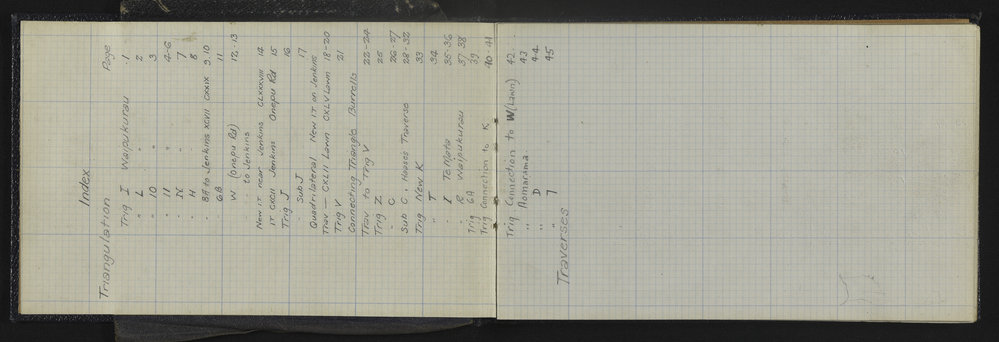 Index
Triangulation Page
Trig I Waipukurau 1
" L " 2
" 10 " 3
" 11 " 4-6
" N " 7
" H 8
" 8A to Jenkins XCVII CXXIX 9.10
" 6B 11
" W (Onepu Rd) 12-13
" to Jenkins
New I.T. near Jenkins CLXXXVIII 14
IT CXCII Jenkins Onepu Rd 15
Trig J 16
" Sub J 17
Quadrilateral New IT on Jenkins
Trav — CXLII Lawn CXLV Lawn 18-20
Trig V 21
Connecting Triangle Burrells
Trav to Trig V 22-24
Trig Z 25
" C 26-27
Sub C, Hoases Traverse 28-32
Trig New K 33
" T 34
" I Te Mata 35-36
" R Waipukurau 37-38
Trig 6A 39
Trig Connection to K 40-41
Trig Connection to W (Lawn) 42
" Aomarama 43
" D 44
" 7 45
Traverses